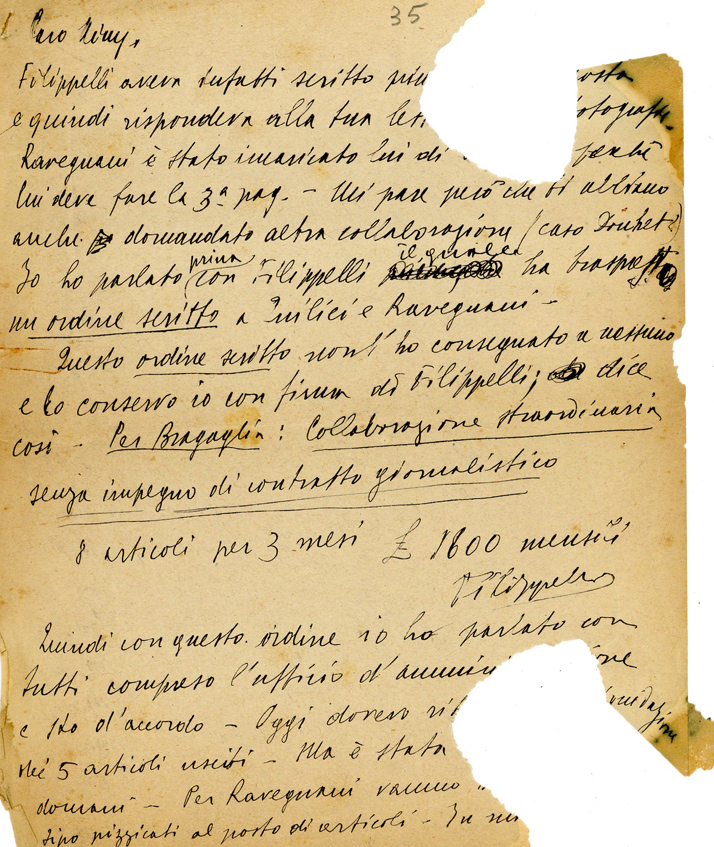 35
Caro
Filippelli aveva infatti scritto
e quindi rispondeva alla tua
Ravegnani è stato incaricato lui di perchè
lui deve fare la 3ª pag. - Mi pare però che ti abbiano
anche domandato altra collaborazione (caso
prima il quale
Io ho parlato con Filippelli ha
un ordine scritto a Quilici e Ravegnani -
Questo ordine scritto non l'ho consegnato a nessuno
e lo conservo io con firma di Filippelli; dice
così - Per Bragaglia: Collaborazione straordinaria
senza impegno di contratto giornalistico
8 articoli per 3 mesi £ 1800 mensili
Filippelli
Quindi con questo ordine io ho parlato con
tutti compreso l'ufficio d'ammini ione
e sto d'accordo - Oggi dovevo
dei 5 articoli usciti - Ma è stata
domani - Per Ravegnani vanno
tipo pizzicati al posto di articoli - In